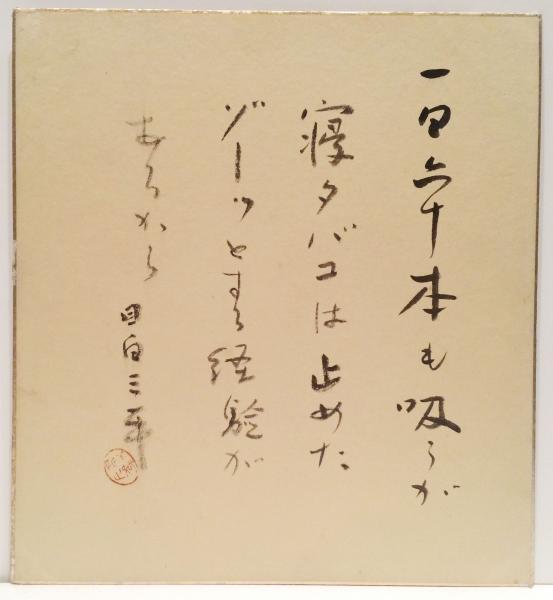 一日六十本も吸うが
寝タバコは止めた
ゾーッとする経験が
あるから 目白三平